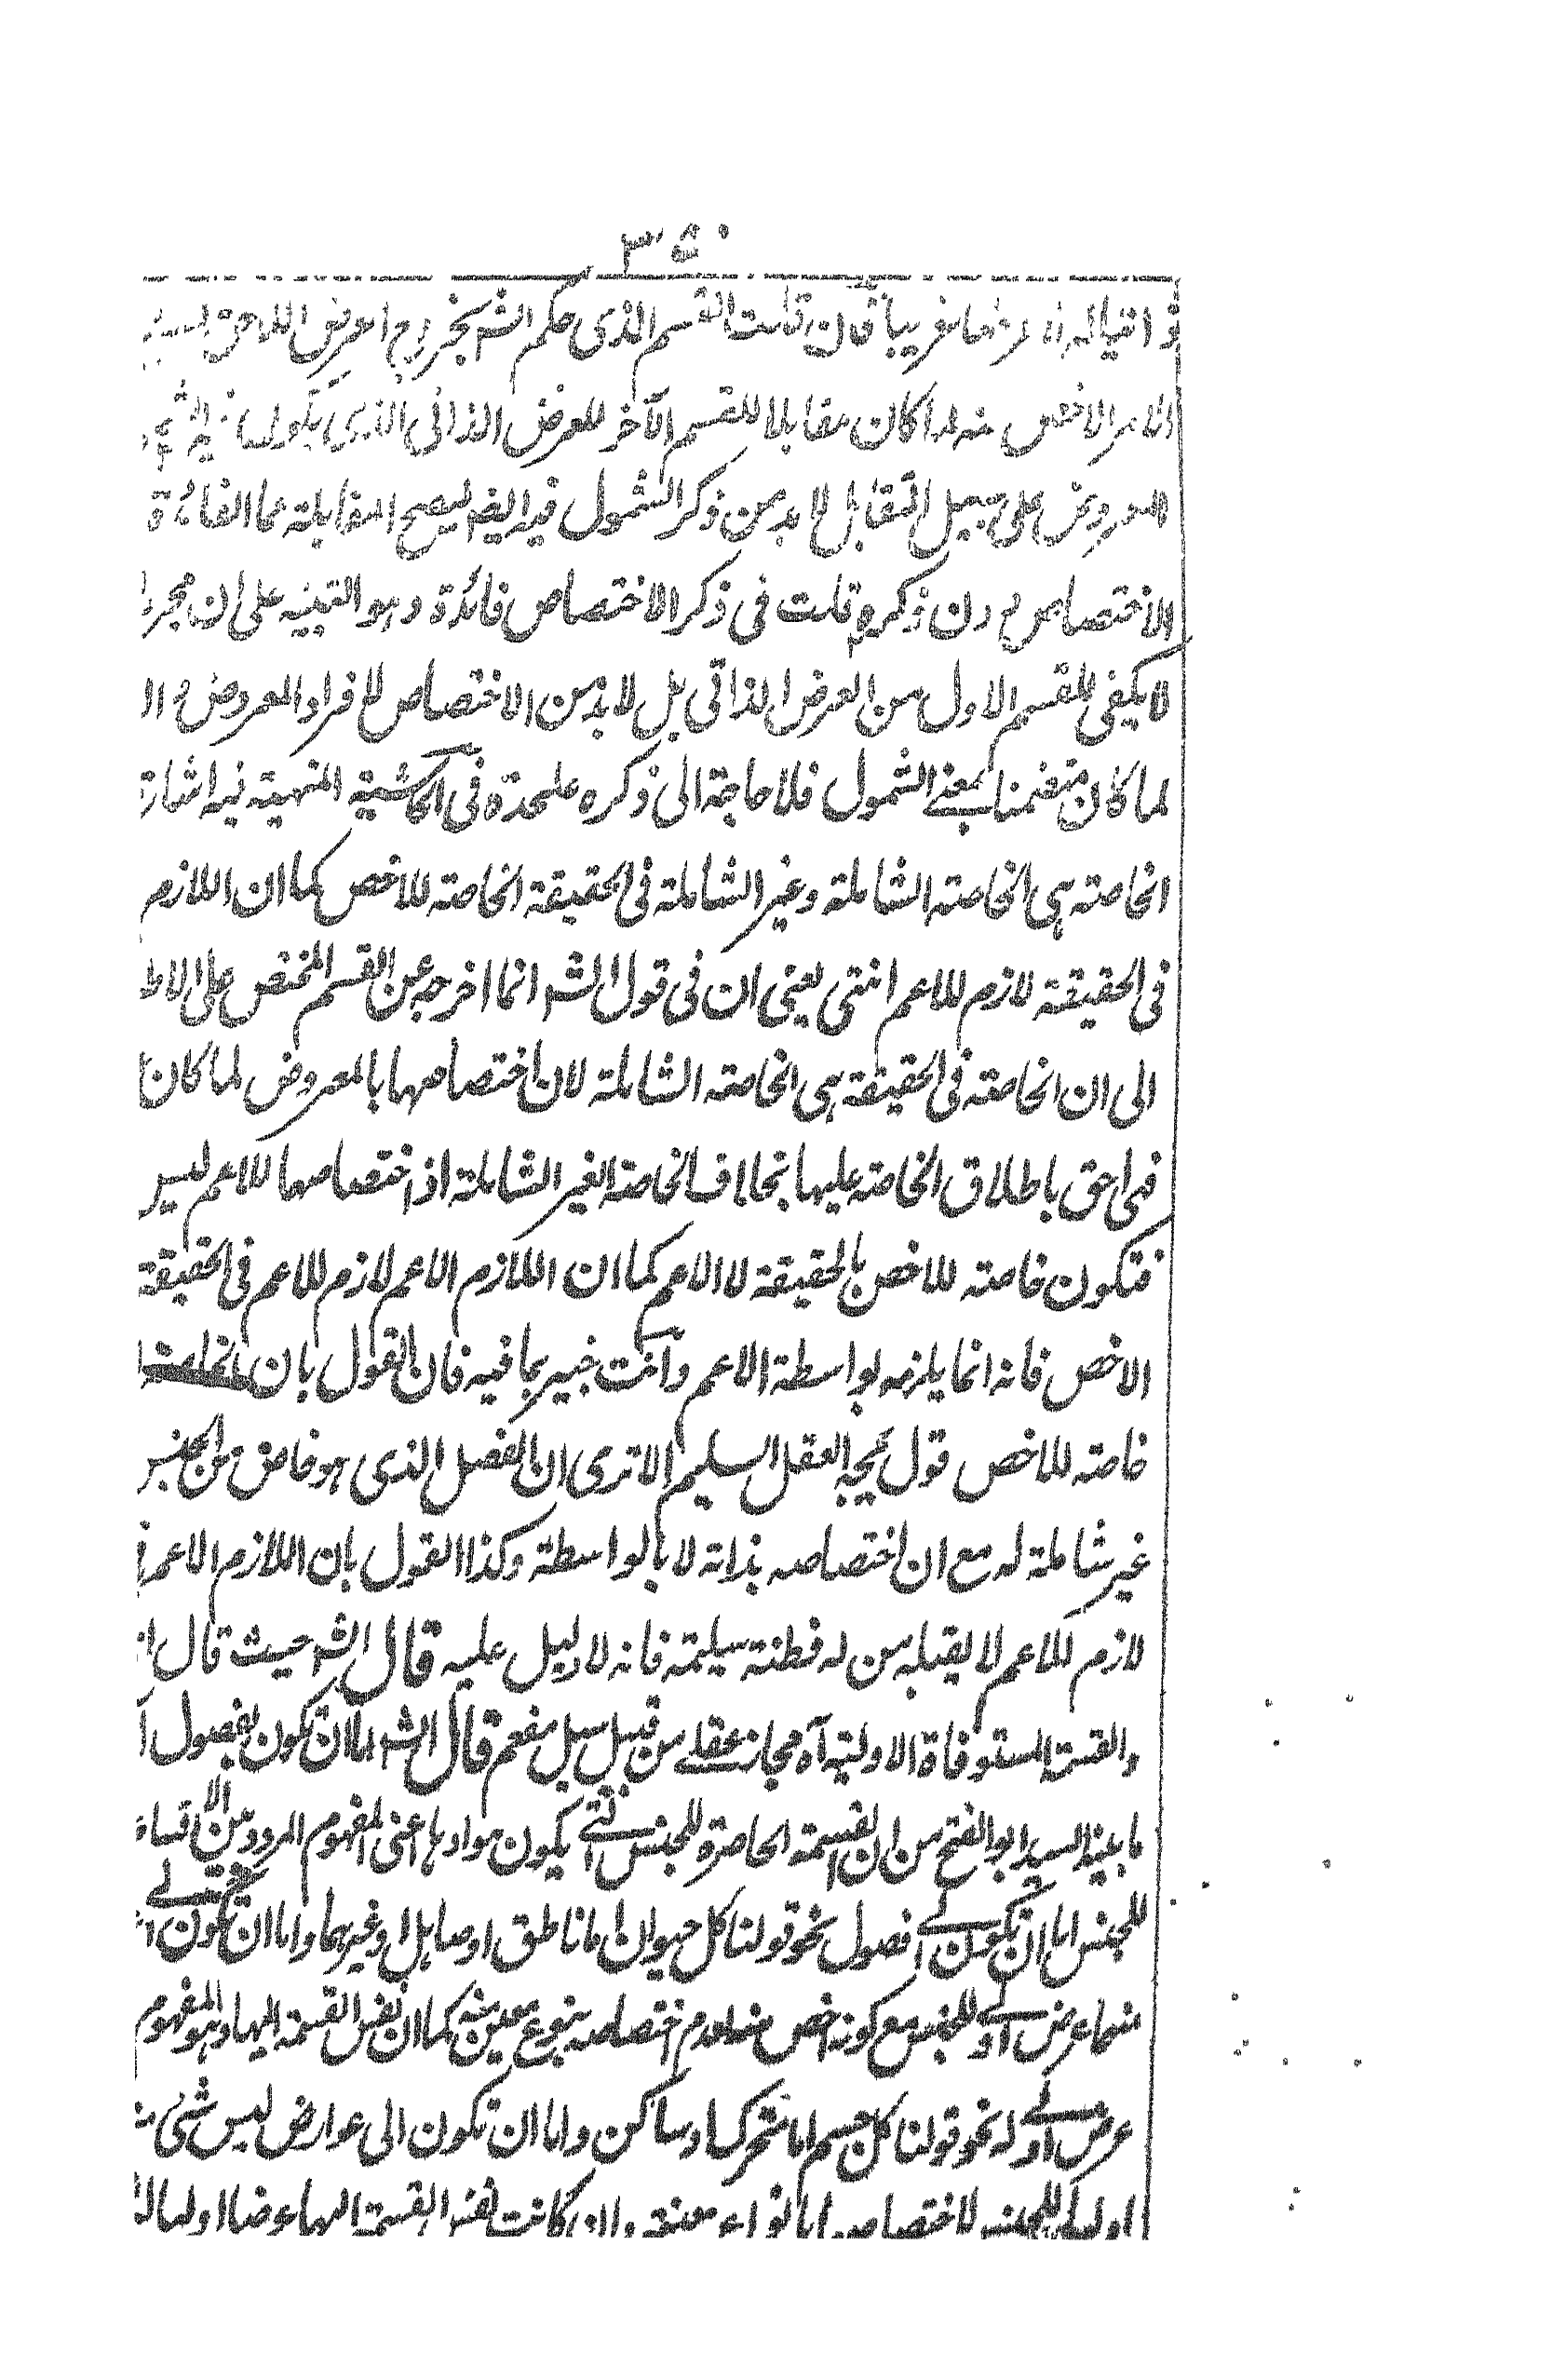 فان قلت القسم الذى حكم الشه بخروج العرض اللاحق
الامر الاخص منه لما كان مقابلا للقسم الآخر للعرض الذاتى الذى يكون
المعروض على سبيل التقابل لا بد من ذكر الشمول فيه ايضا ليصح المقابلة فما الفائدة
الاختصاص بدون ذكره قلت فى ذكر الاختصاص فائدة وهو التنبيه على ان مجرد
لا يكفى للقسم الاول من العرض الذاتى بل لا بد من الاختصاص للافراد المعروض و
لما كان متضمنا لمعنے الشمول فلا حاجة الى ذكره علىحدة فى الحاشية المنهية فيه اشارة
الخاصة هى الخاصة الشاملة وغير الشاملة فى الحقيقة الخاصة للاخص كما ان اللازم
فى الحقيقة لازم للاعم انتهى يعنى ان فى قول الشه انما اخرجه عن القسم المختص على
الى ان الخاصة فى الحقيقة هى الخاصة الشاملة لان اختصاصها بالمعروض لما كان
فهى احق باطلاق الخاصة عليها بخلاف الخاصة الغير الشاملة اذ اختصاصها للاعم ليس
فتكون خاصة للاخص بالحقيقة لا الاعم كما ان اللازم الاعم لازم للاعم فى الحقيقة
الاخص فانه انما يلزمه بواسطة الاعم وانت خبير بما فيه فان القول بان الخاصة
خاصة للاخص قول يمجه العقل السليم الا ترى ان الفصل الذى هو خاص من الجنس
غير شاملة له مع ان اختصاصه بذاته لا بالواسطة وكذا القول بان اللازم الاعم
لازم للاعم لا يقبله من له فطنة سليمة فانه لا دليل عليه قال الشه حيث قال
والقسمة المستوفاة الاولية آه مجاز عقلے من قبيل سيل مفعم قال الشه اما ان تكون بفصول
ما بينه السيد ابو الفتح من ان القسمة الحاصرة للجنس التے يكون موادها اعنى المفهوم المردد من الاقسام
للجنس اما ان تكون الے فصول نحو قولنا كل حيوان اما ناطق او صاهل او غيرهما واما ان تكون
منهما عرض اولے للجنس مع كونه اخص منه لعدم اختصاصه بنوع معين منه كما ان نفس القسمة اليها وهو المفهوم
عرض اولے له نحو قولنا كل جسم اما متحرك او ساكن واما ان تكون الى عوارض ليس شئ
اولے للجنس لاختصاصه اما بانواع معينة وان كانت نفس القسمة اليها عرضا اوليا